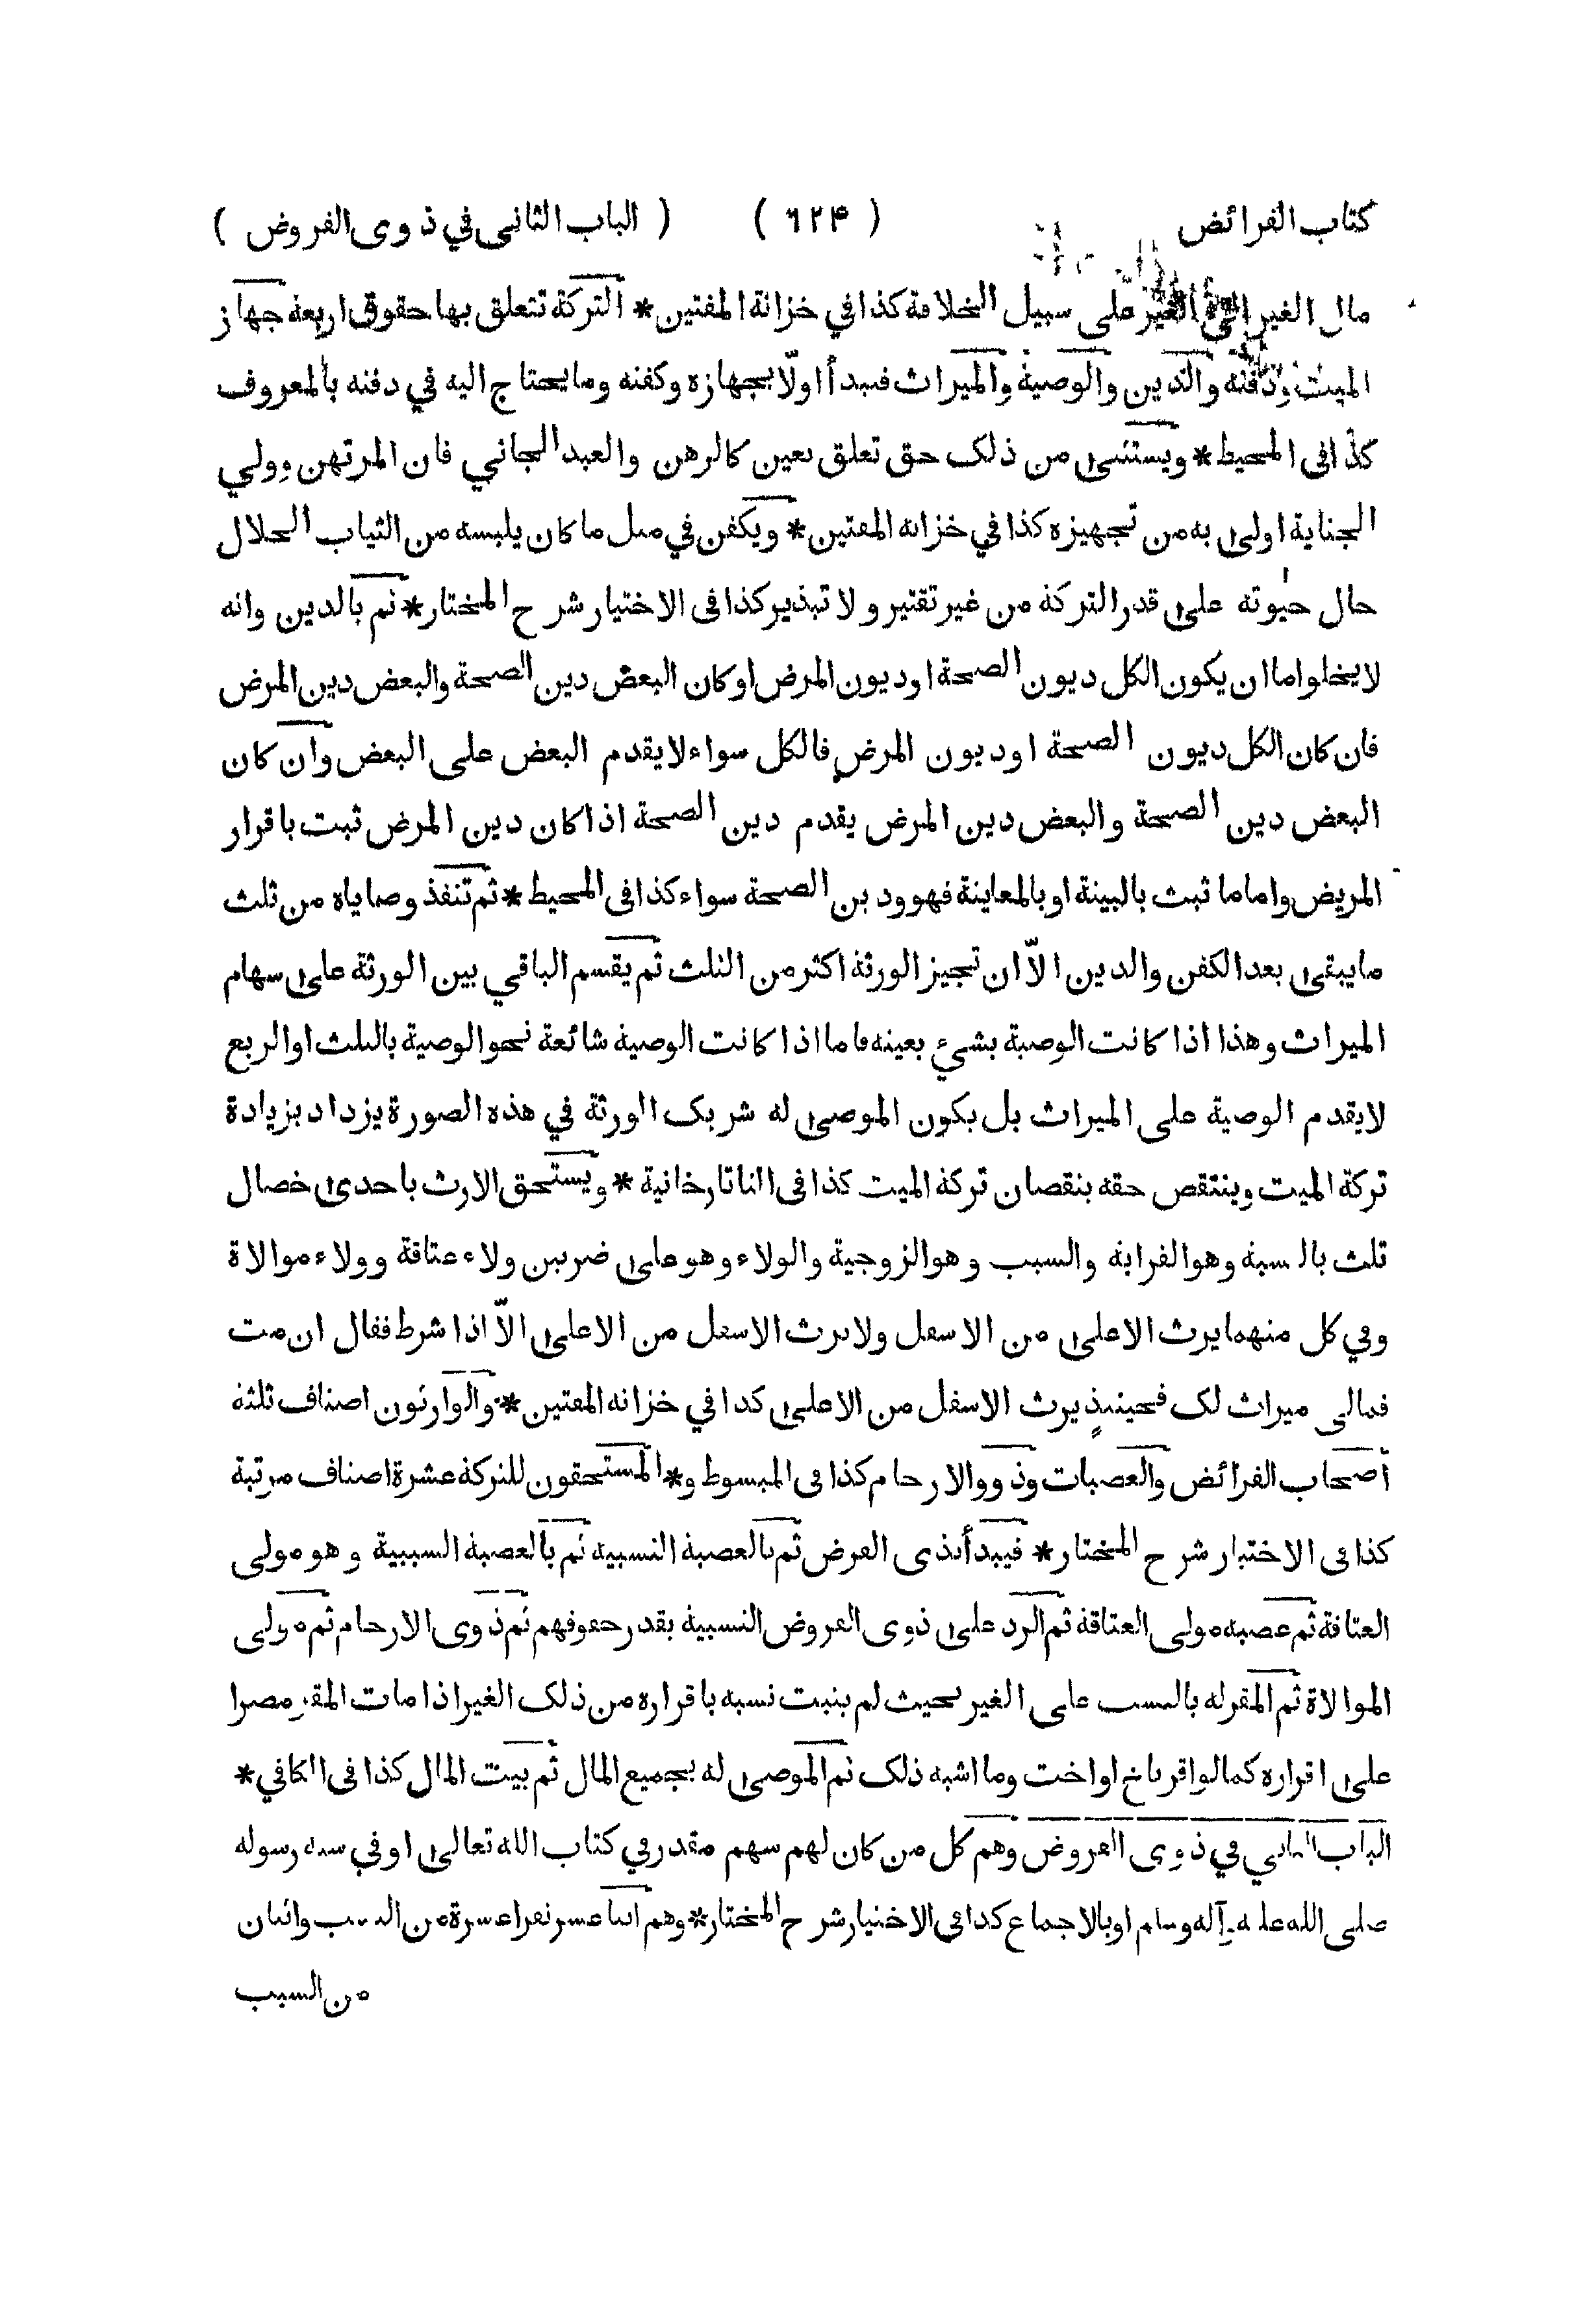 كتاب الفرائض ( ٦٢۴ ) ( الباب الثاني في ذوى الفروض )
مال الغير الى الغير على سبيل الخلافة كذا في خزانة المفتين * التركة تتعلق بها حقوق اربعة جهاز
الميت ودفنه والدين والوصية والميراث فيبدأ اولاّ بجهازه وكفنه وما يحتاج اليه في دفنه بالمعروف
كذا فى المحيط * ويستثنى من ذلك حق تعلق بعين كالرهن والعبد الجاني فان المرتهن وولي
الجناية اولى به من تجهيزه كذا في خزانه المفتين * ويكفن في مثل ما كان يلبسه من الثياب الحلال
حال حيوته على قدر التركة من غير تقتير ولا تبذير كذا فى الاختيار شرح المختار * ثم بالدين وانه
لا يخلوا ما ان يكون الكل ديون الصحة او ديون المرض او كان البعض دين الصحة والبعض دين المرض
فان كان الكل ديون الصحة او ديون المرض فالكل سواء لا يقدم البعض على البعض وان كان
البعض دين الصحة والبعض دين المرض يقدم دين الصحة اذا كان دين المرض ثبت باقرار
المريض واما ما ثبت بالبينة او بالمعاينة فهو ودين الصحة سواء كذا فى المحيط * ثم تنفذ وصاياه من ثلث
ما يبقى بعد الكفن والدين الاّ ان تجيز الورثة اكثر من الثلث ثم يقسم الباقي بين الورثة على سهام
الميراث وهذا اذا كانت الوصية بشيء بعينه فاما اذا كانت الوصية شائعة نحو الوصية بالثلث او الربع
لا يقدم الوصية على الميراث بل يكون الموصى له شريك الورثة في هذه الصورة يزداد بزيادة
تركة الميت وينتقص حقه بنقصان تركة الميت كذا فى التاتارخانية * ويستحق الارث باحدى خصال
ثلث بالنسبة وهو القرابة والسبب وهو الزوجية والولاء وهو على ضربين ولاء عتاقة وولاء موالاة
وفي كل منهما يرث الاعلى من الاسفل ولا يرث الاسفل من الاعلى الاّ اذا شرط فقال ان مت
فمالى ميراث لك فحينئذٍ يرث الاسفل من الاعلى كذا في خزانه المفتين * والوارثون اصناف ثلثة
اصحاب الفرائض والعصبات وذووالارحام كذا فى المبسوط و* المستحقون للتركة عشرة اصناف مرتبة
كذا فى الاختيار شرح المختار * فيبدأ بذى الفرض ثم بالعصبة النسبيه ثم بالعصبة السببية وهو مولى
العتاقة ثم عصبه مولى العتاقة ثم الرد على ذوى الفروض النسبية بقدر حقوقهم ثم ذوى الارحام ثم مولى
الموالاة ثم المقرله بالنسب على الغير بحيث لم يثبت نسبه باقراره من ذلك الغير اذا مات المقر مصرا
على اقراره كما لو اقر باخ او اخت وما اشبه ذلك ثم الموصى له بجميع المال ثم بيت المال كذا فى الكافي *
الباب الثاني في ذوى الفروض وهم كل من كان لهم سهم مقدر في كتاب الله تعالى او في سنه رسوله
صلى الله عليه وآله وسلم او بالاجماع كذا فى الاختيار شرح المختار * وهم اثنا عشر نفرا عشرة من النسب واثنان
من السبب